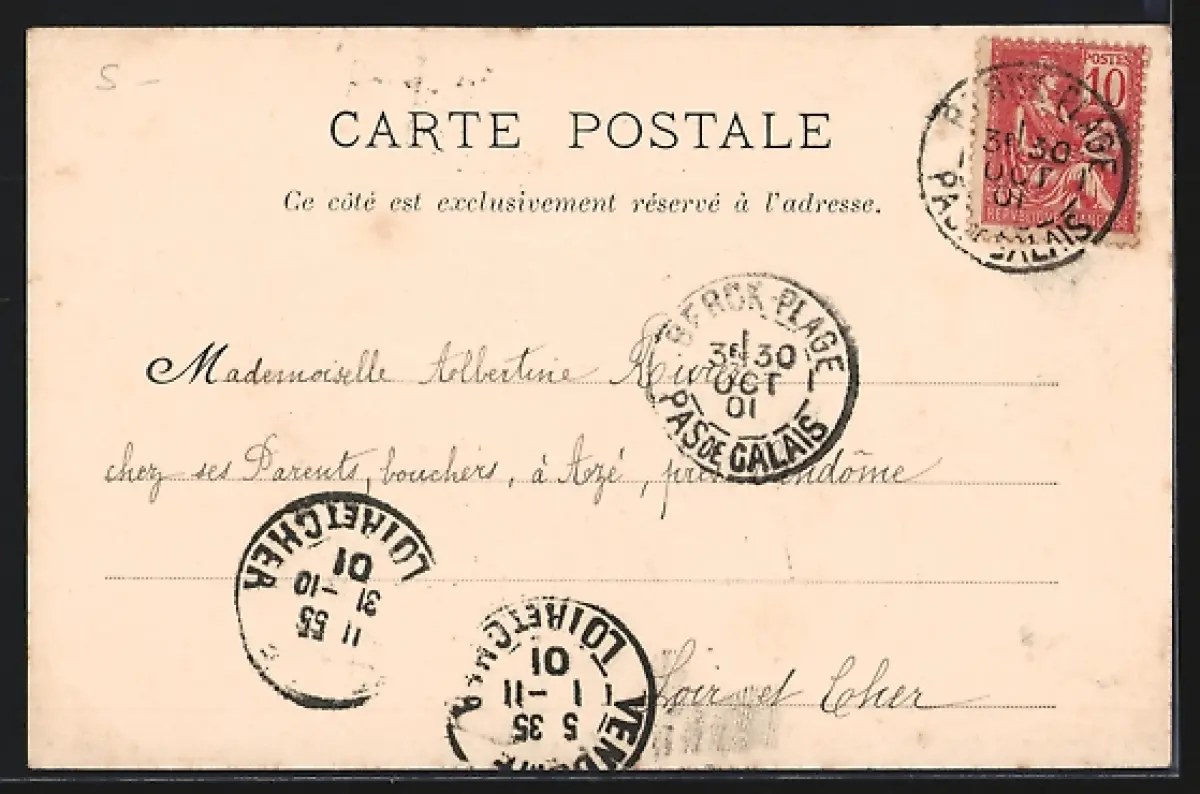 S -
CARTE POSTALE
Ce côté est exclusivement réservé à l'adresse.
POSTES
10
REPVBLIQUE FRANÇAISE
BERCK-PLAGE
3E 30
OCT
01
PAS DE CALAIS
BERCK-PLAGE
3E 30
OCT
01
PAS DE CALAIS
Mademoiselle Albertine
chez ses Parents, bouchers, à Azé, près Vendôme
Loir et Cher
11 55
31 -10
01
LOIR ET CHER
VENDOME
5 35
1 -11
01
LOIR ET CHER